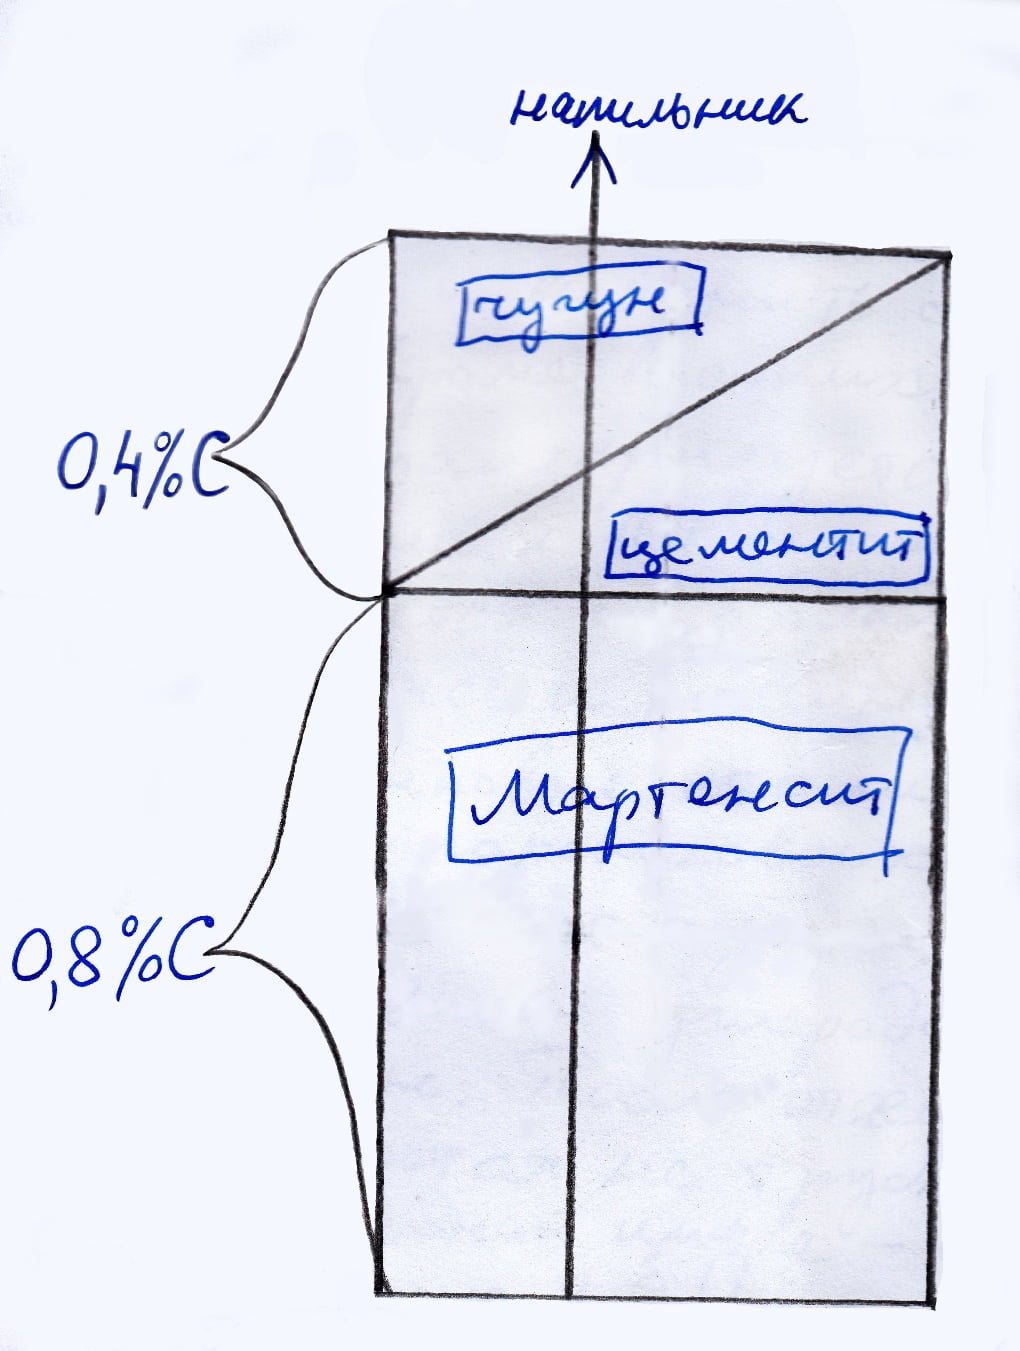 напильник
чугун
0,4%С
цементит
Мартенсит
0,8%С